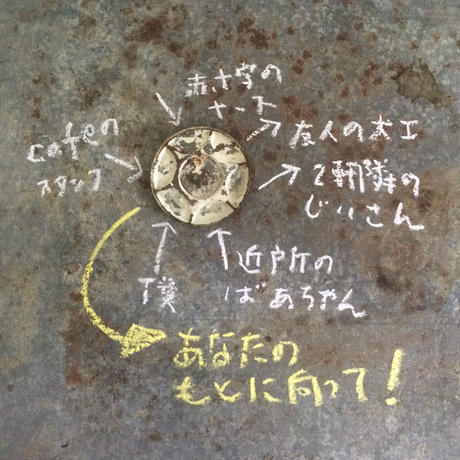 赤十字の
ナース
cafeの
スタッフ
友人の大工
2軒隣の
じいさん
僕
近所の
ばあちゃん
あなたの
もとに向って！